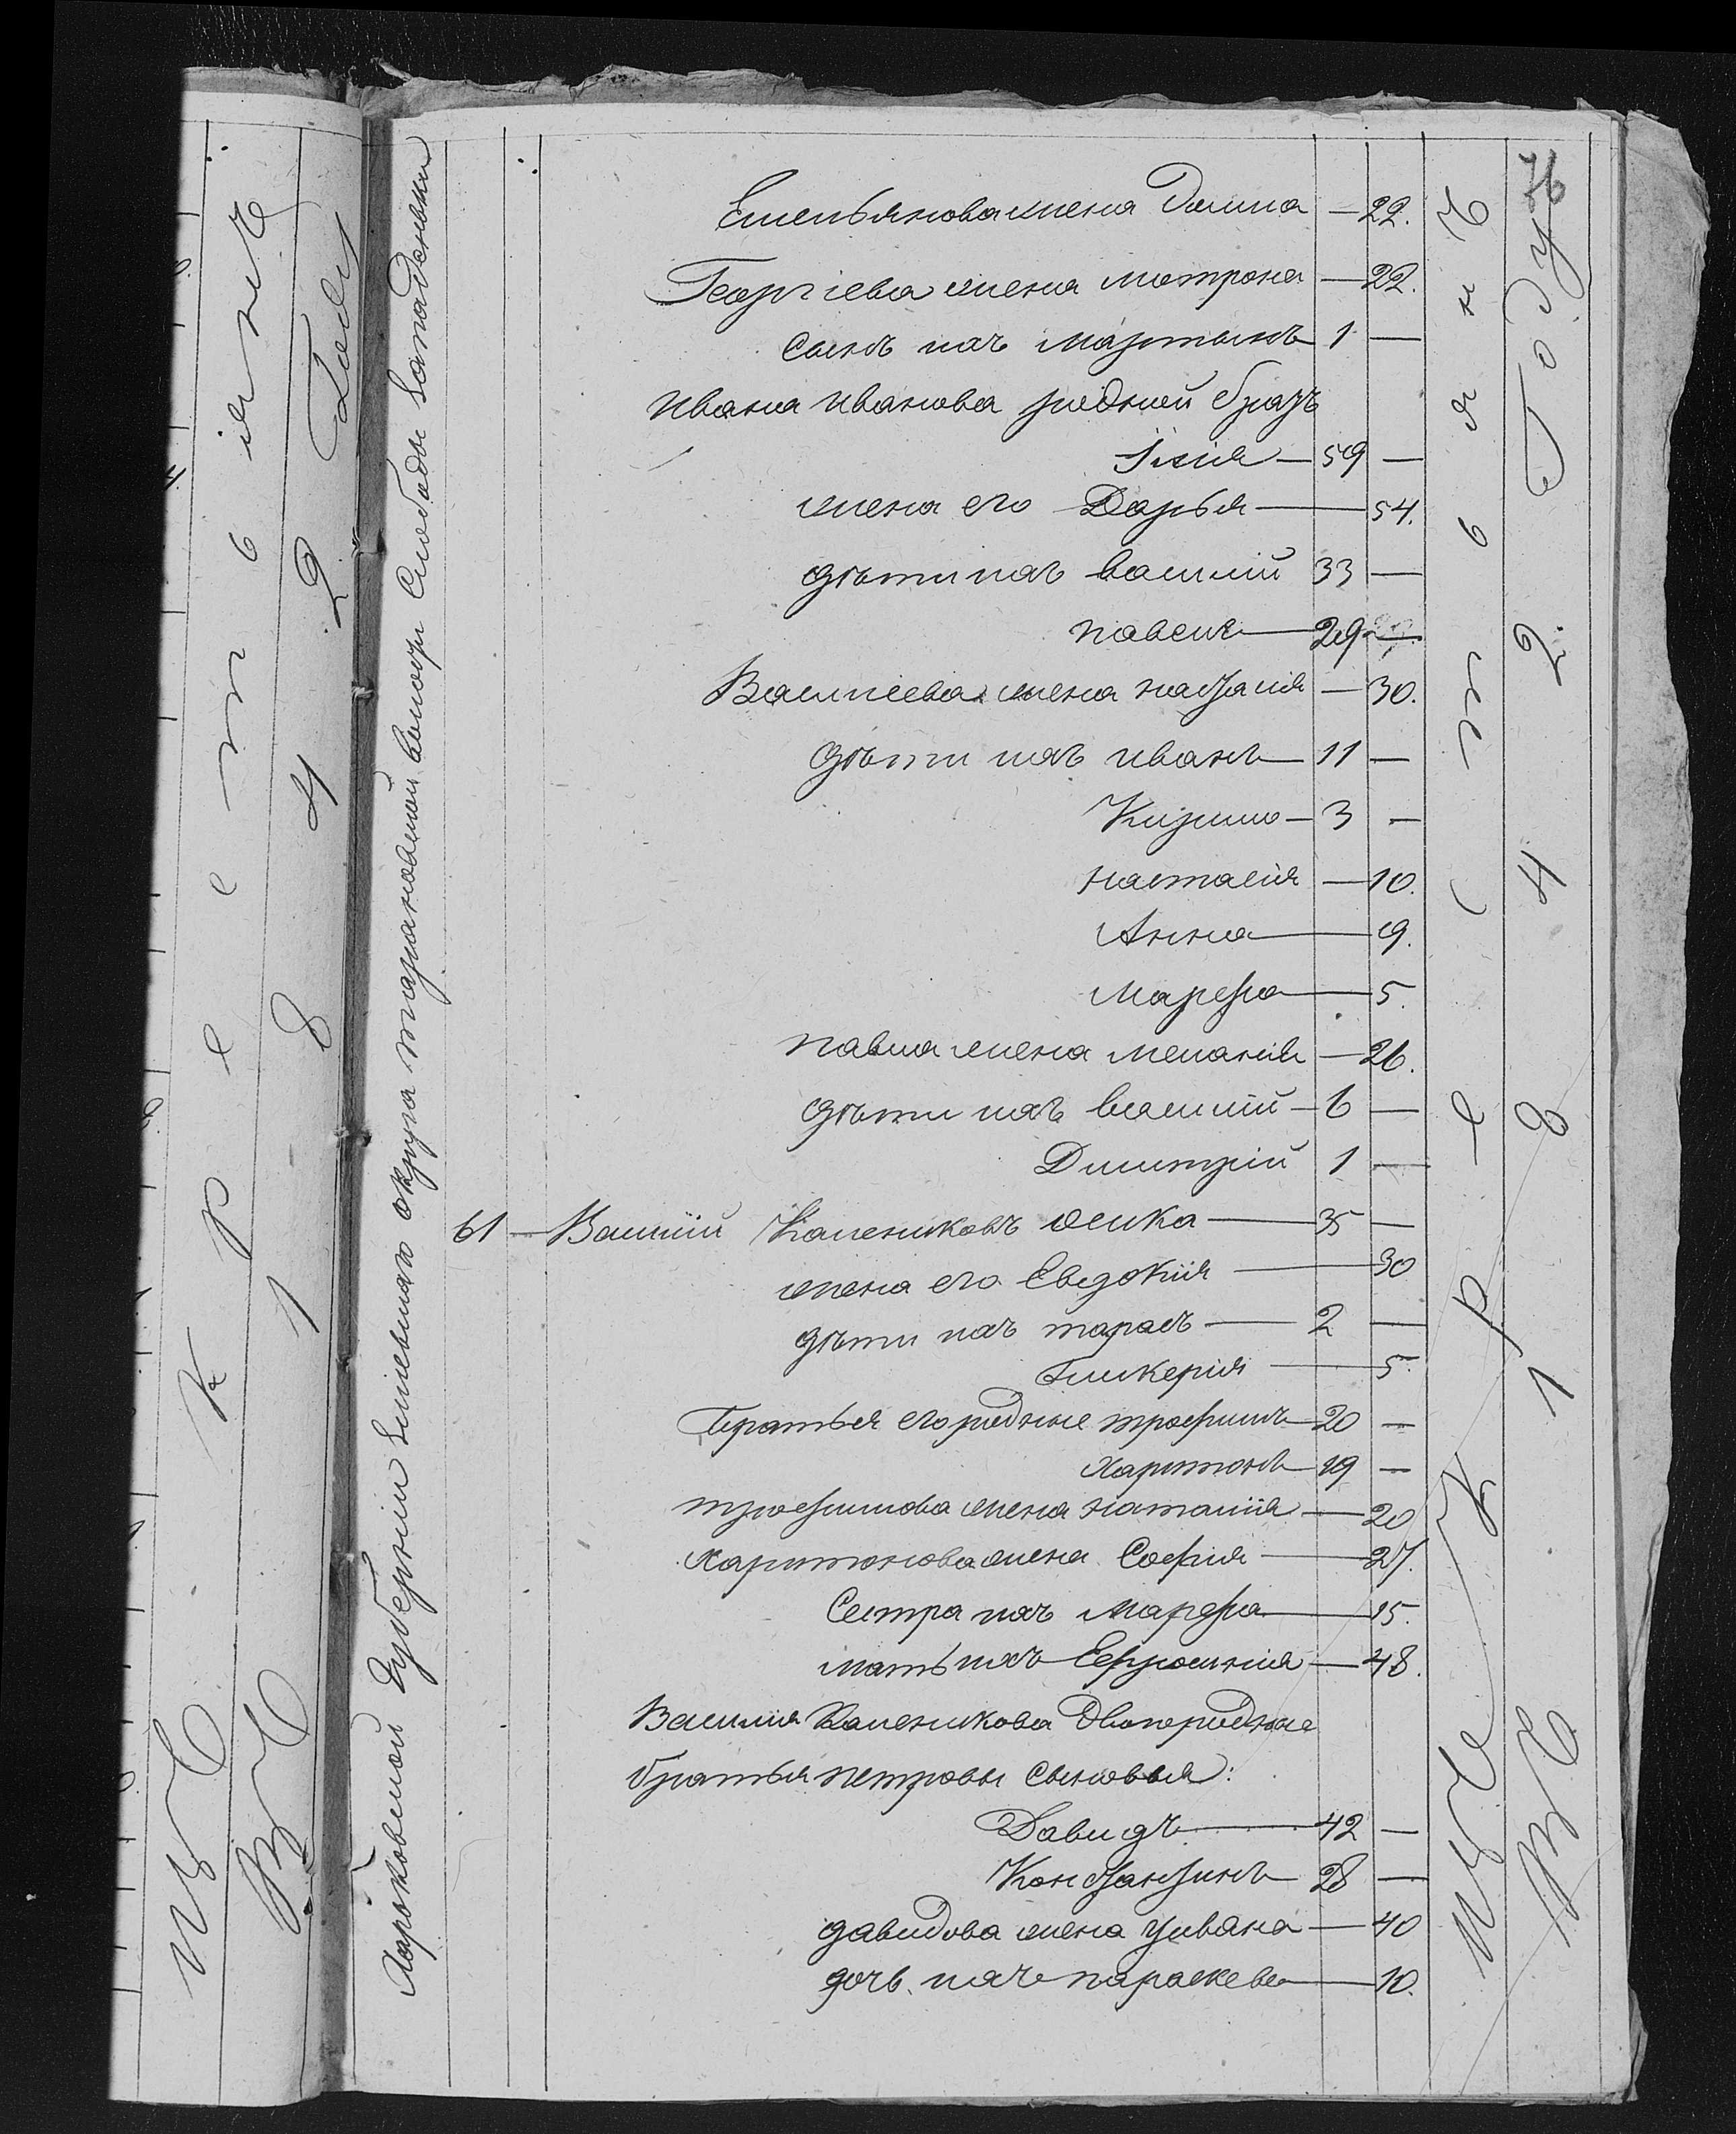 Емельянова жена Домна — 22.
Георгіева жена мотрона — 22.
сынъ ихъ мартынъ 1 —
ивана иванова родной братъ
Илія — 59 —
жена его Дарья — 54.
дѣти ихъ василій 33 —
павелъ — 29 —
Василіева жена наталія — 30.
дѣти ихъ иванъ — 11 —
Кирило — 3 —
настасія — 10.
Анна — 9.
Марефа — 5.
павла жена меланія — 26.
дѣти ихъ василій — 6 —
Дмитрій 1 —
61 — Василій Калениковъ — 35 —
жена его Евдокія — 30
дѣти ихъ тарасъ — 2 —
Гликерія — 5.
Братья его родные трофимъ — 20 —
Харитонъ — 19 —
трофимова жена наталія — 20
Харитонова жена Софія — 27.
Сестра ихъ Марефа — 15.
мать ихъ Ефросинія — 48.
Василія Каленикова Двоюродные
братья петровы сыновья:
Давидъ — 42 —
Константинъ 28 —
давидова жена уляна — 40
дочь ихъ параскева — 10.
Харьковской Губерніи Зміевскаго округа тарановской волости Слободы
Из Крестьянъ
въ 1842. Году
Из Крестьянъ
въ 1842 Году